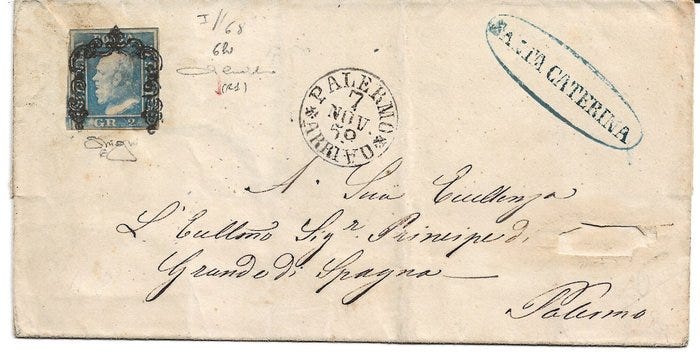 POSTA
GR. 2
I // 68
62
(R1)
PALERMO
7
NOV.
59
ARRIVO
SANTA CATERINA
A Sua Eccellenza
L'Eccllmo Sigr. Principe di
Grande di Spagna
Palermo